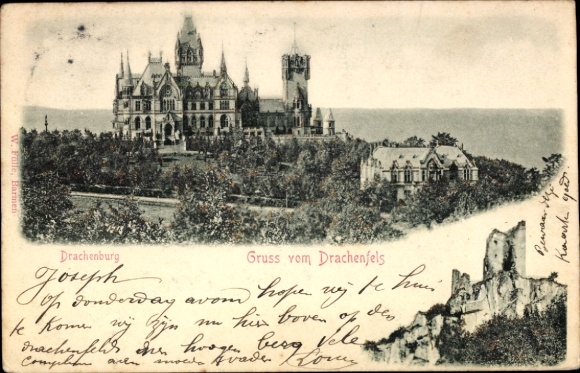 W. Fülle, Barmen
Drachenburg
Gruss vom Drachenfels
Joseph
Op donderdag avom hopen wij te huis
te komen wij zijn nu hier boven op den
drachenfels een hoogen berg Vele
complimen aan moeder vader